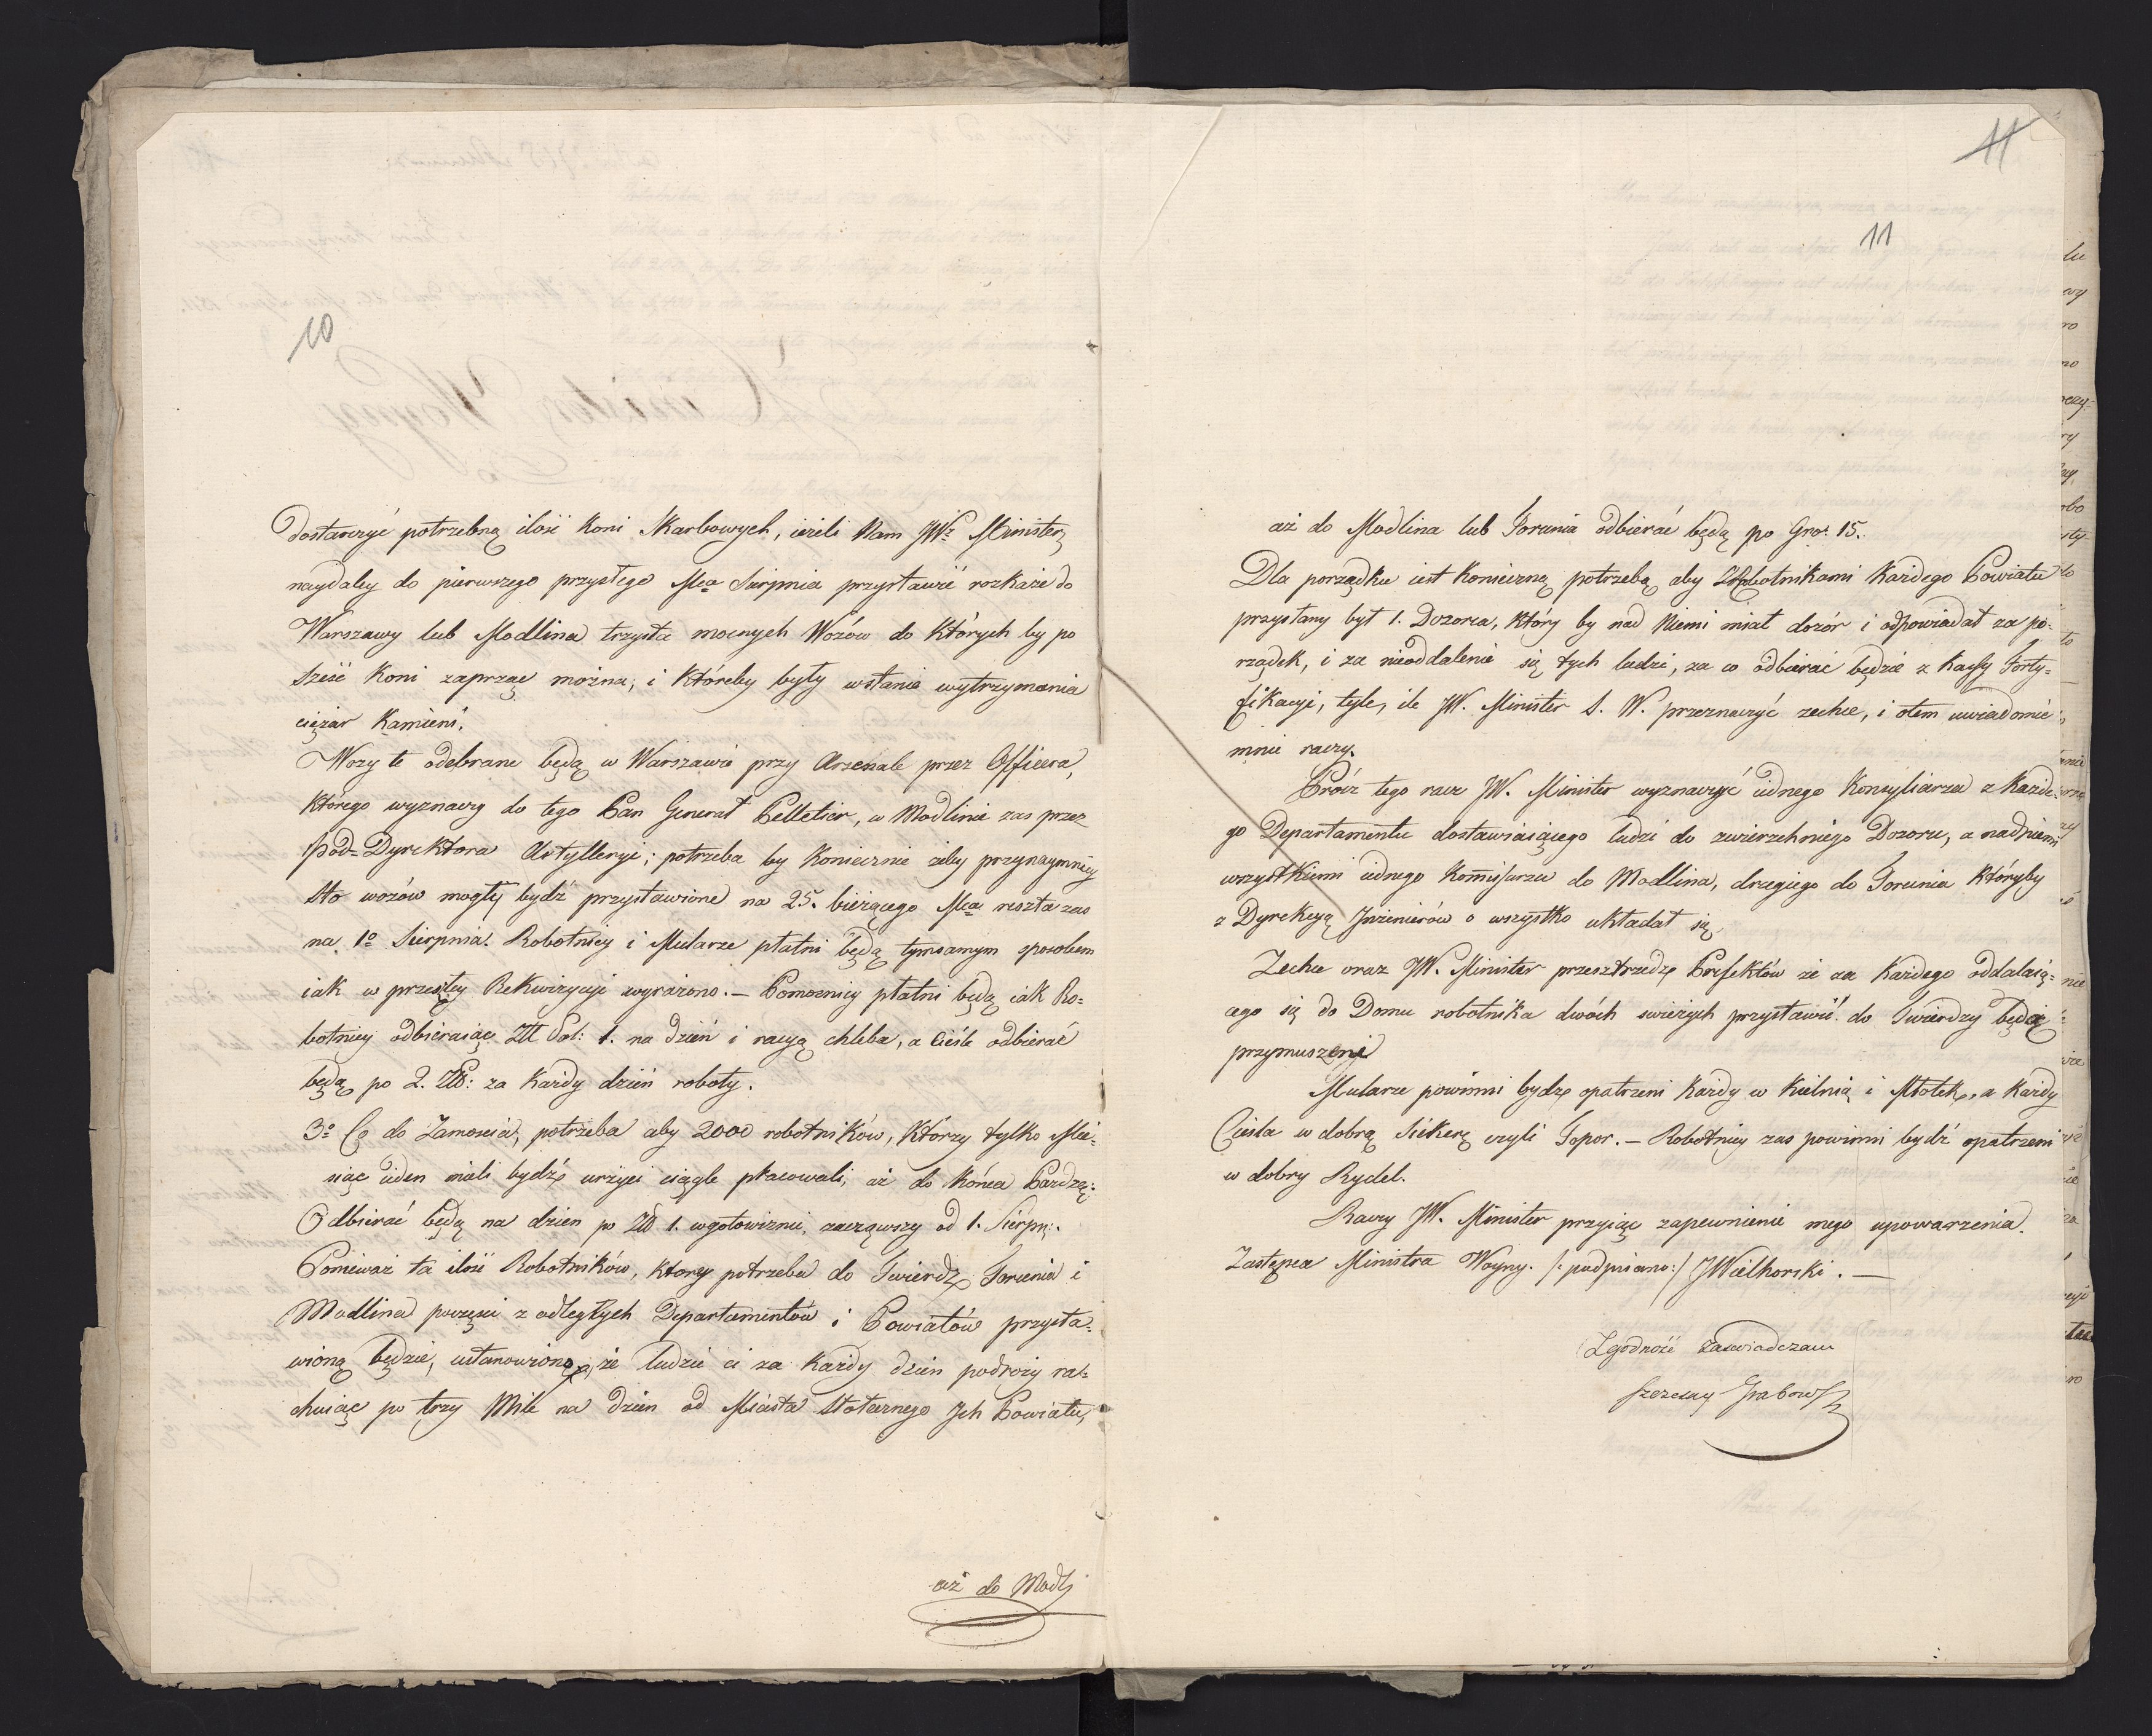 10
Dostarczyć potrzebną ilość Koni Skarbowych, ieżeli Nam JWz Minister
naydaley do pierwszego przyszłego Mca Sierpnia przystawić rozkaże do
Warszawy lub Modlina trzysta mocnych Wozów do których by po
sześć Koni zaprząc można, i któreby były wstanie wytrzymania
ciężar kamieni.
Wozy te odebrane będą w Warszawie przy Arsenale przez Officera,
którego wyznaczy do tego Pan Generał Pelletier, w Modlinie zas przez
Pod=Dyrektora Artylleryi; potrzeba by koniecznie żeby przynaymniey
sto wozów mogły bydź przystawione na 25. bieżącego Mca reszta zas
na 1o Sierpnia. Robotnicy i Mularze płatni będą tymsamym sposobem
iak w przeszłey Rekwizycyi wyrażono.— Pomocnicy płatni będą iak Ro=
botnicy odbieraiąc Zll Pol: 1. na dzień i racyą chleba, a Cieśle odbierać
będą po 2. Złł: za każdy dzień roboty.
3o Co do Zamościa, potrzeba aby 2000 robotników, którzy tylko Mie=
siąc ieden mieli bydź użyci ciągle pracowali, aż do końca Paźdz:
Odbierać będą na dzien po Zł 1. w gotowiznie, zacząwszy od 1. Sierp:.
Ponieważ ta ilość Robotników, ktorey potrzeba do Twierdz Torunia i
Modlina poczęsci z odległych Departamentów i Powiatów przysta=
wioną będzie, ustanowiono, że ludzie ci za każdy dzień podroży ra=
chuiąc po trzy Mile na dzien od Miasta Stołecznego Ich Powiatu,
aż do Modl
11
11
aż do Modlina lub Torunia odbierać będą po Gro: 15.
Dla porządku iest konieczną potrzebą aby z Robotnikami każdego Powiatu
przysłany był 1. Dozorca, który by nad Niemi miał dozór i odpowiadał za po=
rządek, i za nieoddalenie się tych ludzi, za co odbierać będzie z kassy Forty=
fikacyi, tyle, ile JW. Minister S. W. przeznaczyć zechce, i otem uwiadomić
mnie raczy.
Prócz tego racz JW. Minister wyznaczyć iednego Konsyliarza z każde=
go Departamentu dostawiaiącego ludzi do zwierzchniego Dozoru, a nad niemi
wszystkiemi iednego Kommissarza do Modlina, drugiego do Torunia któryby
z Dyrekcyą Inżenierów o wszystko układał się
Zechce oraz JW. Minister przestrzedz Prefektów że za każdego oddalaią=
cego się do Domu robotnika dwóch swieżych przystawić do Twierdzy będą
przymuszeni
Mularze powinni bydz opatrzeni każdy w Kielnią i Młotek, a każdy
Cieśla w dobrą Siekerę czyli Topor.— Robotnicy zas powinni bydź opatrzeni
w dobry Rydel.
Raczy JW. Minister przyiąć zapewnienie mego upoważenia.
Zastępca Ministra Woyny. /: podpisano:/ JWielhorski.—
Zgodność zaswiadczam
Szczęsny Grabowski